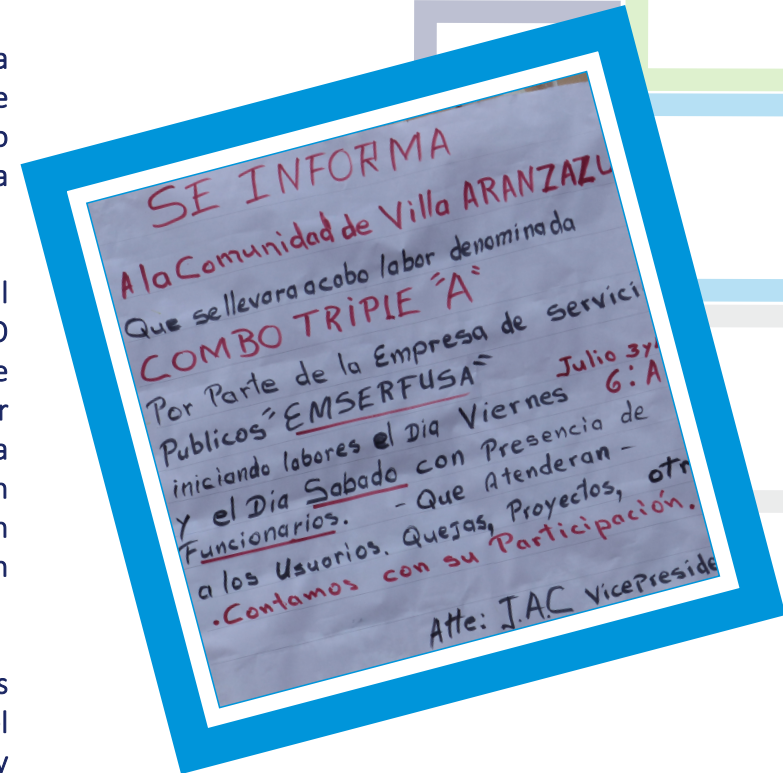 SE INFORMA
A la Comunidad de Villa ARANZAZU
Que se llevara acobo labor denominada
COMBO TRIPLE "A"
Por Parte de la Empresa de servici
Publicos "EMSERFUSA"
Julio 3y
iniciando labores el Dia Viernes 6:A
y el Dia Sabado con Presencia de
Funcionarios. - Que Atenderan -
a los Usuarios. Quejas, Proyectos, otr
.Contamos con su Participación.
Atte: J.A.C Vicepreside